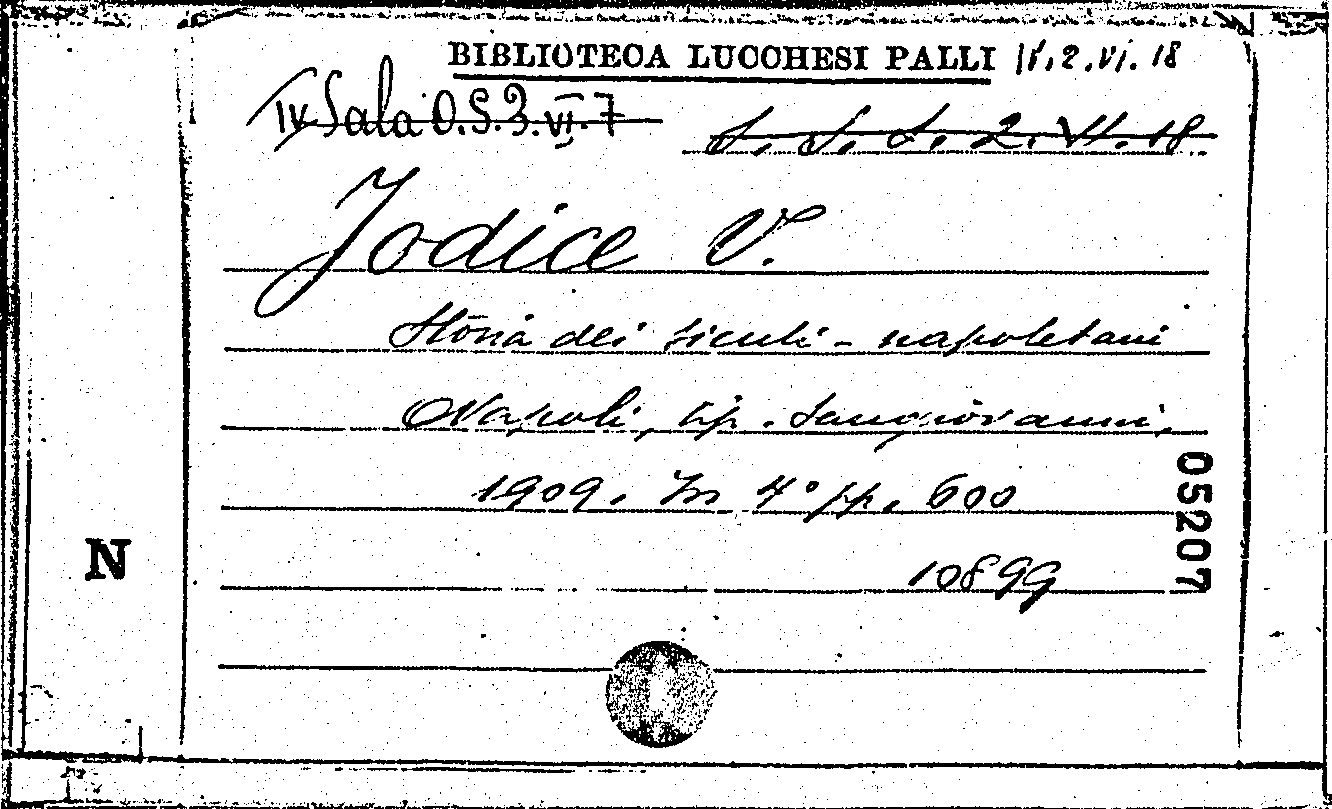 BIBLIOTECA LUCCHESI PALLI IV.2.VI.18
IV Sala O.S.3.VI.7
2.VI.18
Jodice V.
Storia dei siculi-napoletani
Napoli, tip. Sangiovanni,
1909. In 4° pp. 600
10899
05207
N